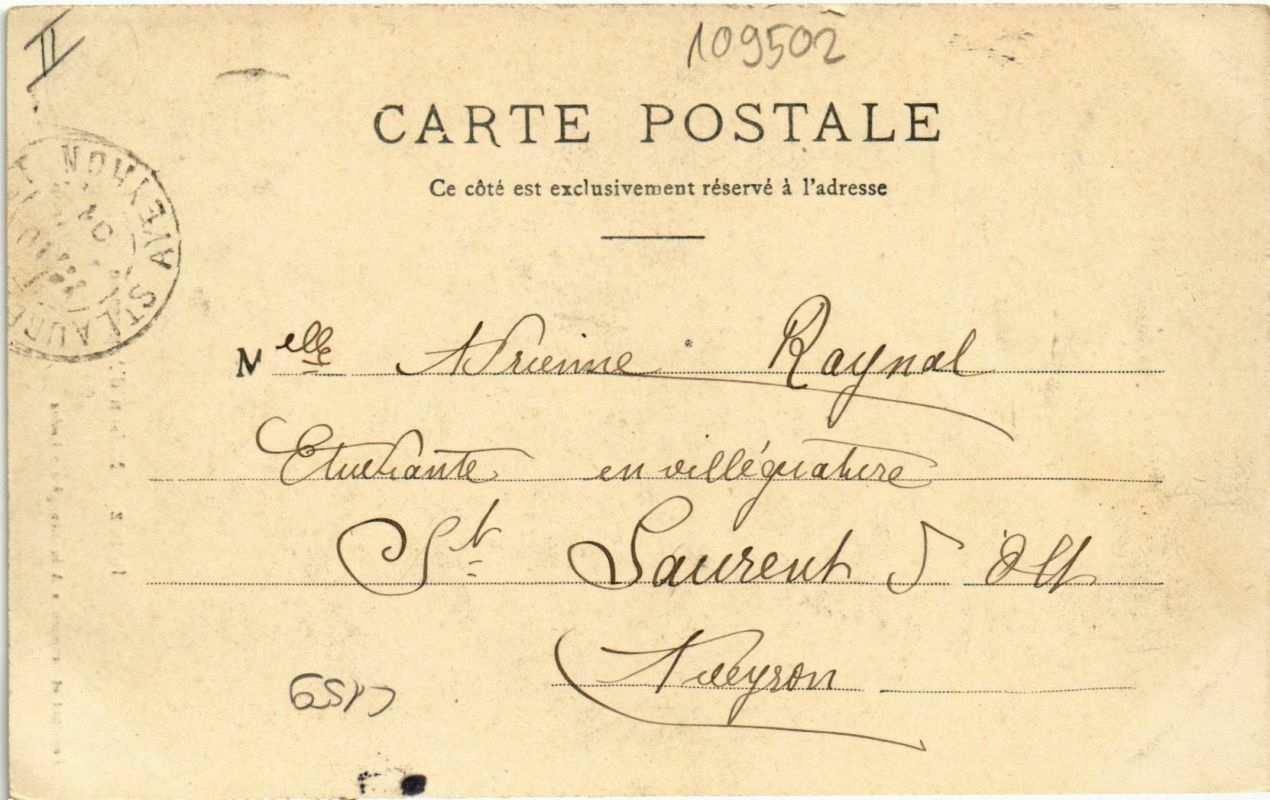 II
109502
CARTE POSTALE
Ce côté est exclusivement réservé à l'adresse
AVEYRON ST LAURE
04
Melle Adrienne Raynal
Etudiante en villégiature
St Laurent d'Olt
Aveyron